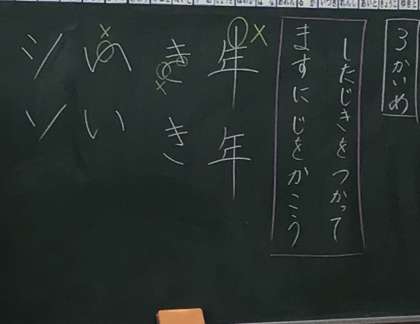 3かいめ
したじきをつかって
ますにじをかこう
年 x 年
き x き
い x い
ツ ソ